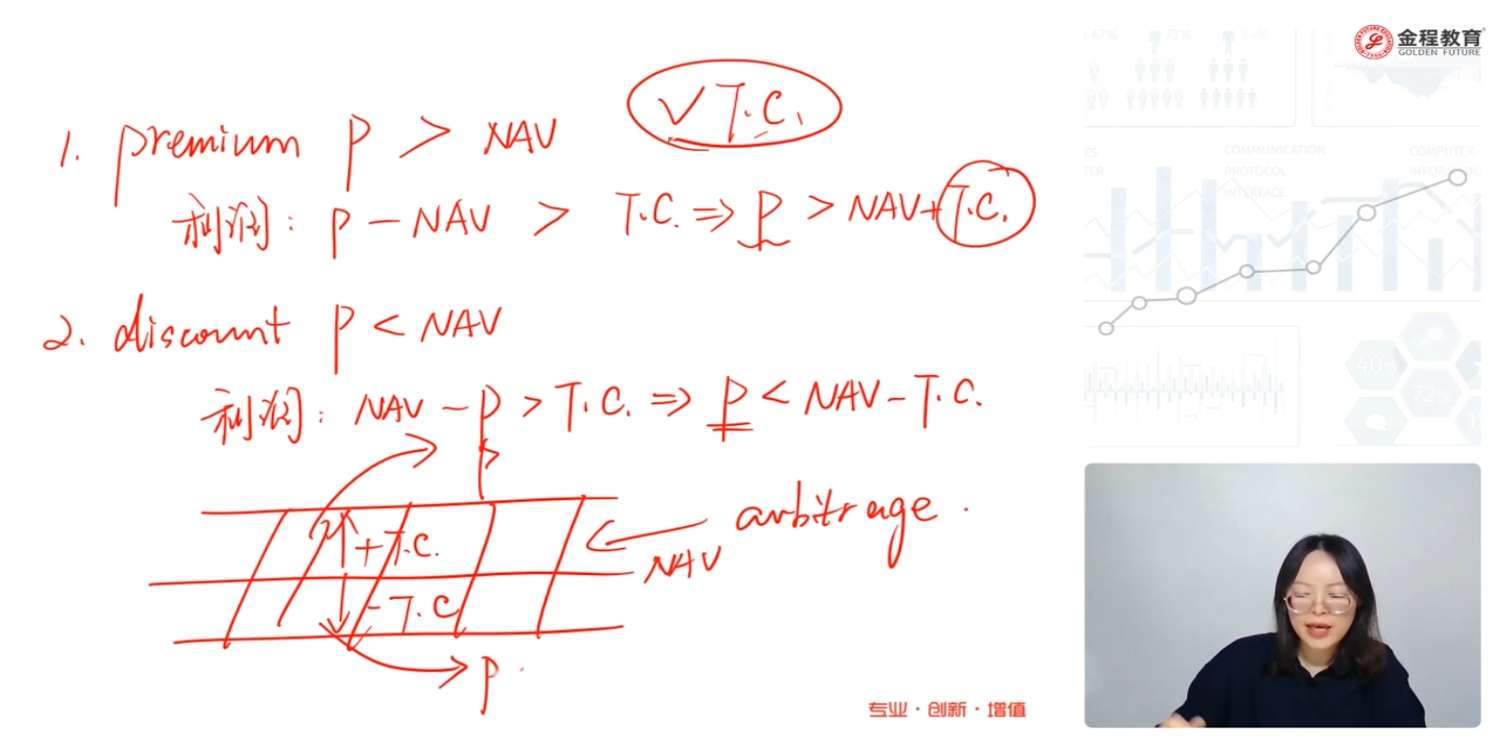 金程教育
GOLDEN FUTURE
✓ T.C.
1. premium P > NAV
利润: P - NAV > T.C. ⇒ P > NAV + T.C.
2. discount P < NAV
利润: NAV - P > T.C. ⇒ P < NAV - T.C.
P
+ T.C.
arbitrage.
NAV
- T.C
P.
COMMUNICATION
PROTOCOL
INTERFACE
COMPUTER
专业·创新·增值